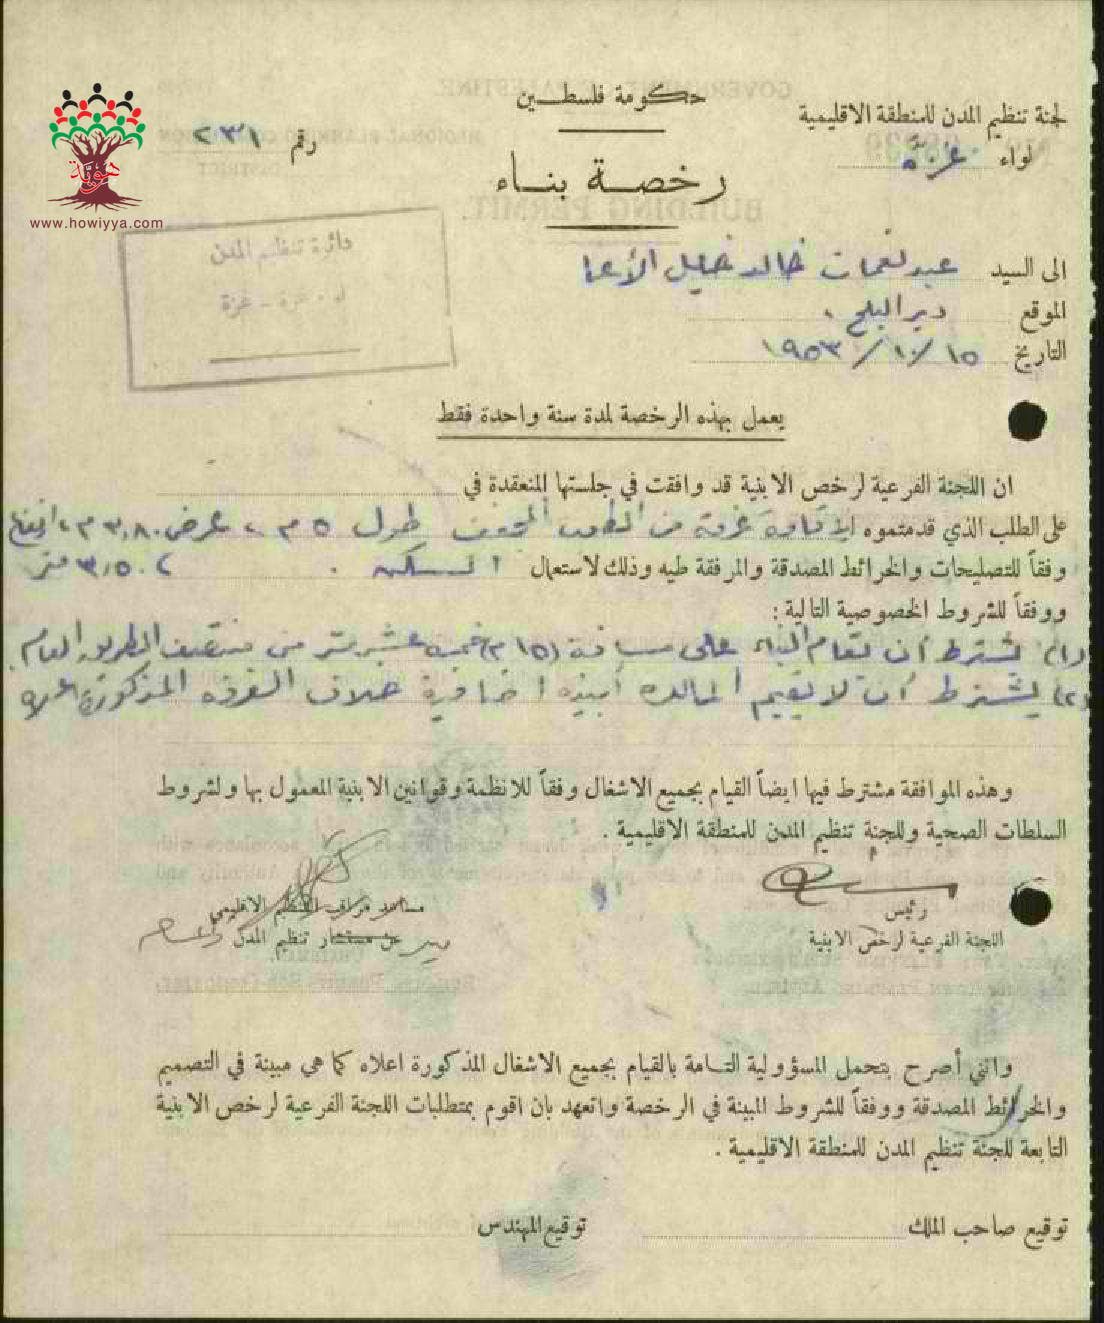 حكومة فلسطين
لجنة تنظيم المدن للمنطقة الاقليمية
لواء غزة
رقم ٢٣١
هوية
www.howiyya.com
رخصة بناء
دائرة تنظيم المدن
غزة
الى السيد عبد نعمات خالد خليل الأعما
الموقع دير البلح
التاريخ ١٩٥٣/١٠/١٥
يعمل بهذه الرخصة لمدة سنة واحدة فقط
ان اللجنة الفرعية لرخص الابنية قد وافقت في جلستها المنعقدة في
على الطلب الذي قدمتموه لاقامة غرفة من الطوب المجفف طول ٥ م، عرض ٣,٨٠ م،
وفقاً للتصليحات والخرائط المصدقة والمرفقة طيه وذلك لاستعمال السكن. ٣,٥٠ متر
ووفقاً للشروط الخصوصية التالية :
(١) يشترط أن تقام البناء على مسافة (١٥ م) خمسة عشر متر من منتصف الطريق العام.
(٢) يشترط أن لا تقيم المالكه أبنية اضافية خلاف الغرفه المذكورة اعلاه
وهذه الموافقة مشترط فيها ايضاً القيام بجميع الاشغال وفقاً للانظمة وقوانين الابنية المعمول بها ولشروط
السلطات الصحية وللجنة تنظيم المدن للمنطقة الاقليمية .
رئيس
اللجنة الفرعية لرخص الابنية
مساعد مراقب التنظيم الاقليمي
عن مستشار تنظيم المدن
وانني أصرح بتحمل المسؤولية التامة بالقيام بجميع الاشغال المذكورة اعلاه كما هي مبينة في التصميم
والخرائط المصدقة ووفقاً للشروط المبينة في الرخصة واتعهد بان اقوم بمتطلبات اللجنة الفرعية لرخص الابنية
التابعة للجنة تنظيم المدن للمنطقة الاقليمية .
توقيع صاحب الملك
توقيع المهندس